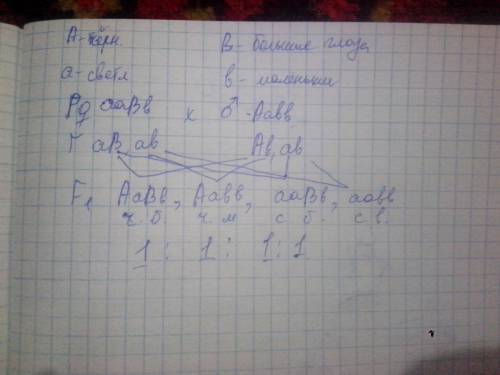 А-чёрн. В- большие глаза
а-светл в- маленькие
Р ♀ ааВв х ♂-Аавв
Г аВ, ав Ав, ав
F₁ АаВв, Аавв, ааВв, аавв
ч. б. ч. м с б. с
1 : 1 : 1 : 1